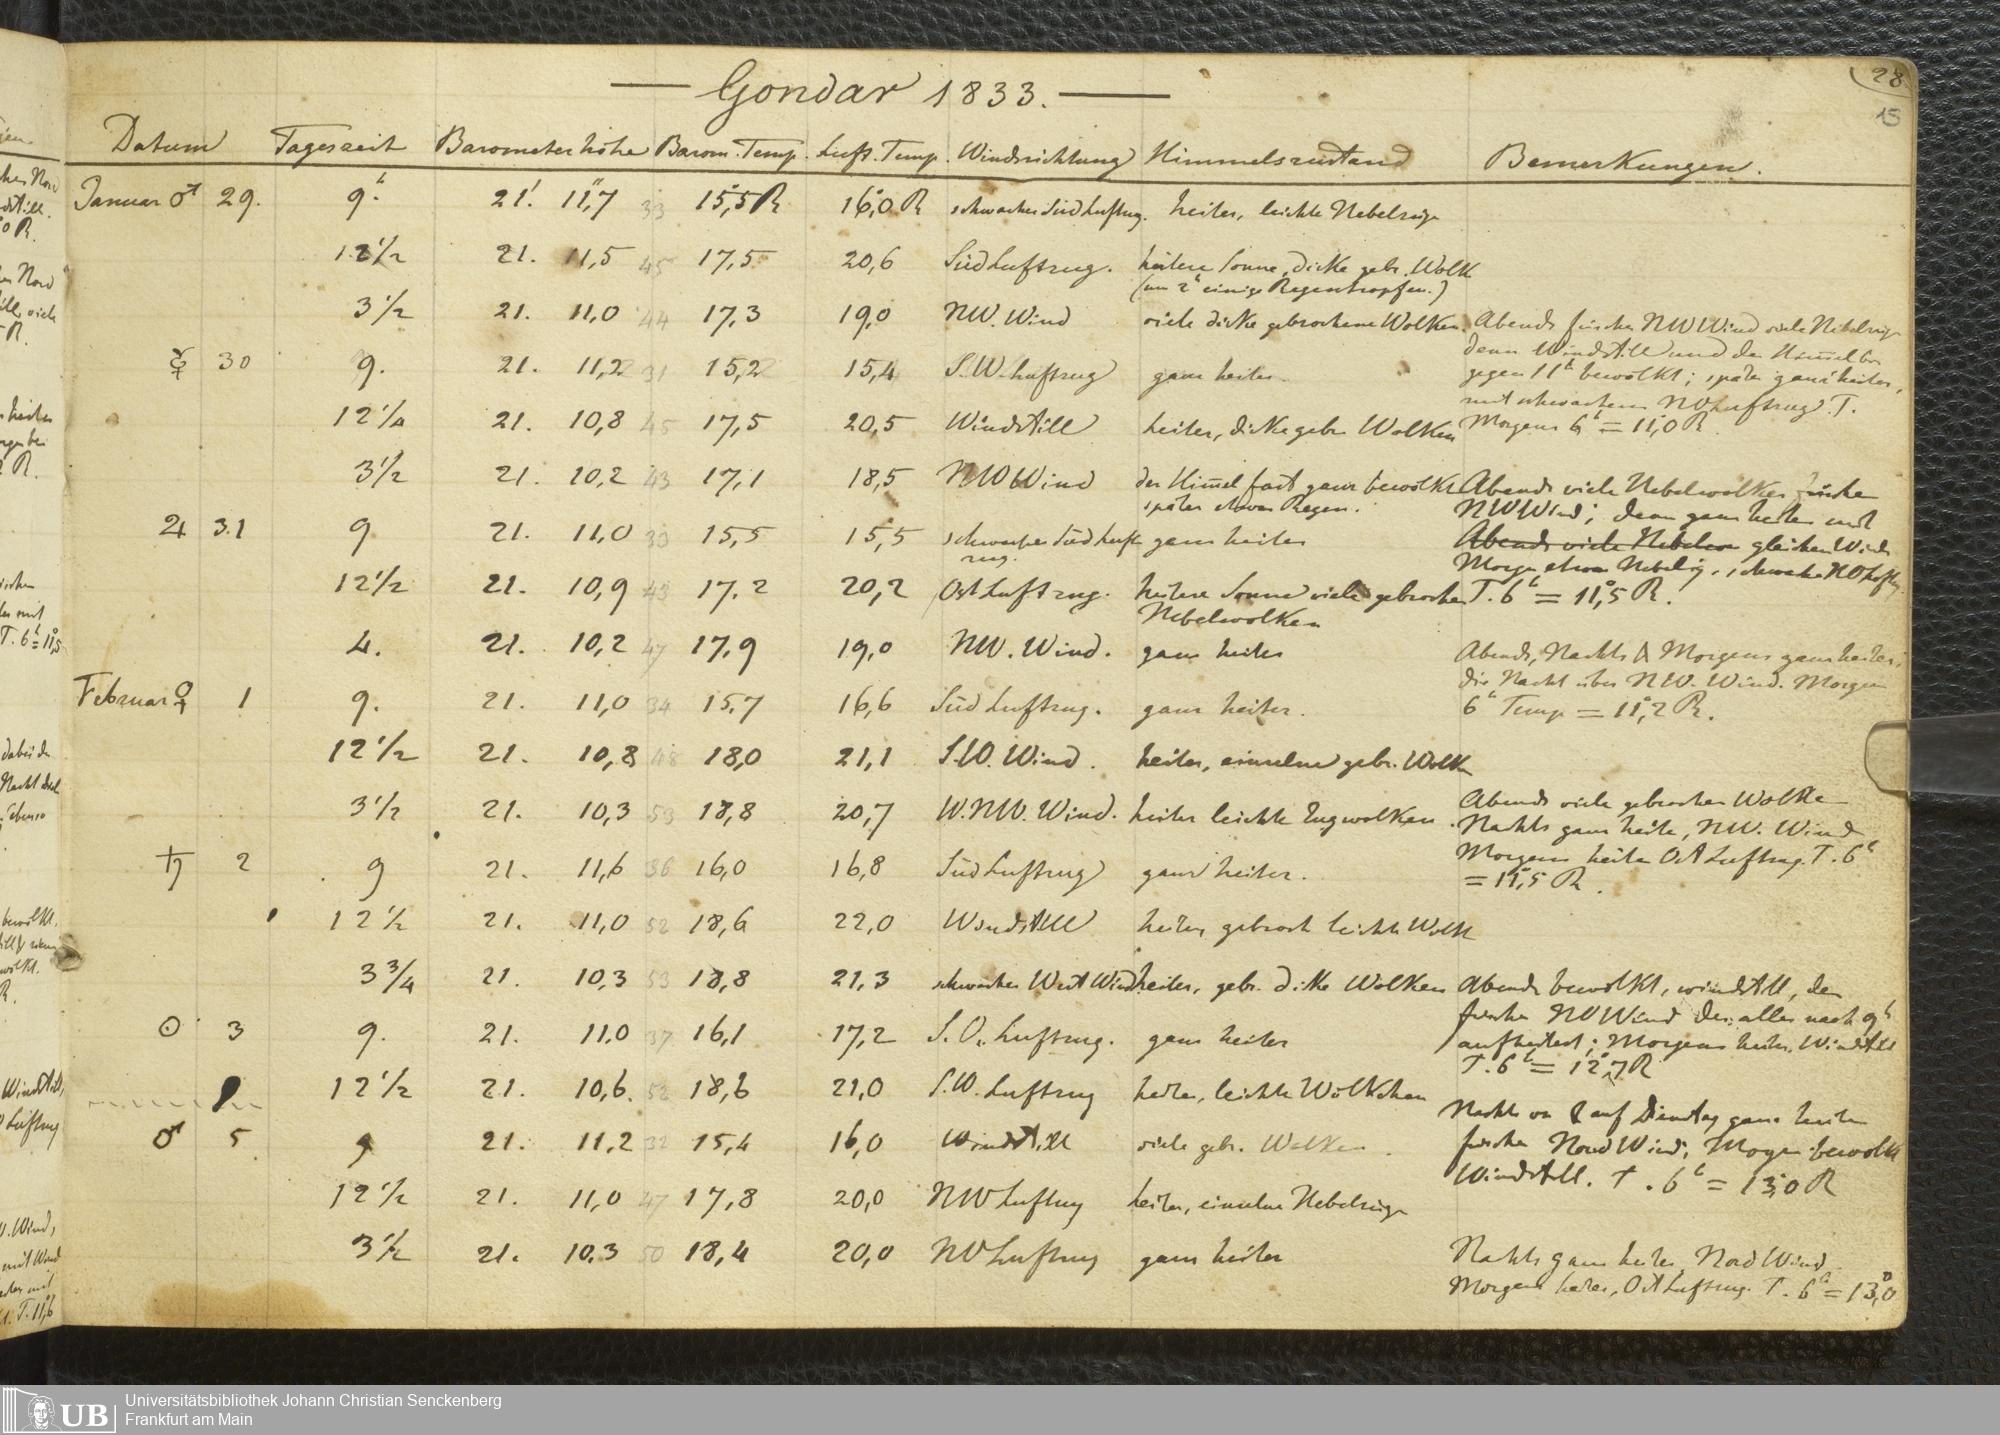 28
15
— Gondar 1833. —
Datum Tageszeit Barometerhöhe Barom. Temp. Luft. Temp. Windrichtung Himmelszustand Bemerkungen.
Januar ♂ 29. 9h. 21' 11,"7 33 15,°5 R 16,°0 R schwacher Südluftzug. heiter, leichte Nebelzüge
12 1/2 21. 11,5 45 17,5 20,6 Südluftzug. heitere Sonne, dicke gebr. Wolk
(um 2h einige Regentropfen.)
3 1/2 21. 11,0 44 17,3 19,0 NW. Wind viele dicke gebrochene Wolken.
Abends frischer NW Wind viele Nebelzüge
dann Windstill und der Himel bis
gegen 11h bewölkt; später ganz heiter,
mit schwachem NO Luftzug. T.
Morgens 6h = 11,°0 R
☿ 30 9. 21. 11,2 31 15,2 15,4 S.W. Luftzug ganz heiter.
12 1/4 21. 10,8 45 17,5 20,5 Windstill heiter, dicke gebr Wolken
3 1/2 21. 10,2 43 17,1 18,5 NW Wind der Himel fast ganz bewölkt
später etwas Regen.
Abends viele Nebelwolken frischer
NW Wind; dann ganz heiter mit
Abends viele Nebelwo gleichen Winde
Morgen etwas Nebelig, schwacher NO Luftzug
T. 6h = 11,°5 R.
♃ 31 9 21. 11,0 33 15,5 15,5 schwacher Südluft ganz heiter
zug.
12 1/2 21. 10,9 43 17,2 20,2 Ost Luftzug. heitere Sonne viele gebrochen
Nebelwolken
4. 21. 10,2 47 17,9 19,0 NW. Wind. ganz heiter
Abends, Nachts & Morgens ganz heiter;
die Nacht über NW. Wind. Morgen
6h Temp = 11,°2 R.
Februar ♀ 1 9. 21. 11,0 34 15,7 16,6 Süd Luftzug. ganz heiter.
12 1/2 21. 10,8 48 18,0 21,1 S.W. Wind. heiter, einzelne gebr. Wolk
3 1/2 21. 10,3 53 18,8 20,7 W.NW. Wind. heiter leichte Zugwolken.
Abends viele gebrochen Wolke
Nachts ganz heite, NW. Wind
Morgens heiter Ost Luftzug. T. 6h
= 11,°5 R.
♄ 2 9 21. 11,6 36 16,0 16,8 Süd Luftzug ganz heiter.
12 1/2 21. 11,0 52 18,6 22,0 Windstill heiter gebroch leichte Wolk
3 3/4 21. 10,3 53 18,8 21,3 schwacher West Wind heiter, gebr. dicke Wolken
Abends bewölkt, windstill, der
frische NO Wind der alles nach 9h
aufheitert; Morgens heiter, Windstill
T. 6h = 12,°7 R
☉ 3 9. 21. 11,0 37 16,1 17,2 S.O. Luftzug. ganz heiter
12 1/2 21. 10,6. 52 18,6 21,0 S.W. Luftzug heiter, leichte Wölkchen
Nachts von auf Dienstag ganz heiter
frischer Nord Wind; Morgen bewölkt
Windstill. T. 6h = 13,°0 R
♂ 5 9 21. 11,2 32 15,4 16,0 Windstill viele gebr. Wolken.
12 1/2 21. 11,0 47 17,8 20,0 NW Luftzug heiter, einzelne Nebelzüge
3 1/2 21. 10,3 50 18,4 20,0 NW Luftzug ganz heiter
Nachts ganz heiter, Nord Wind
Morgens heiter, Ost Luftzug. T. 6h = 13,°0
UB Universitätsbibliothek Johann Christian Senckenberg
Frankfurt am Main